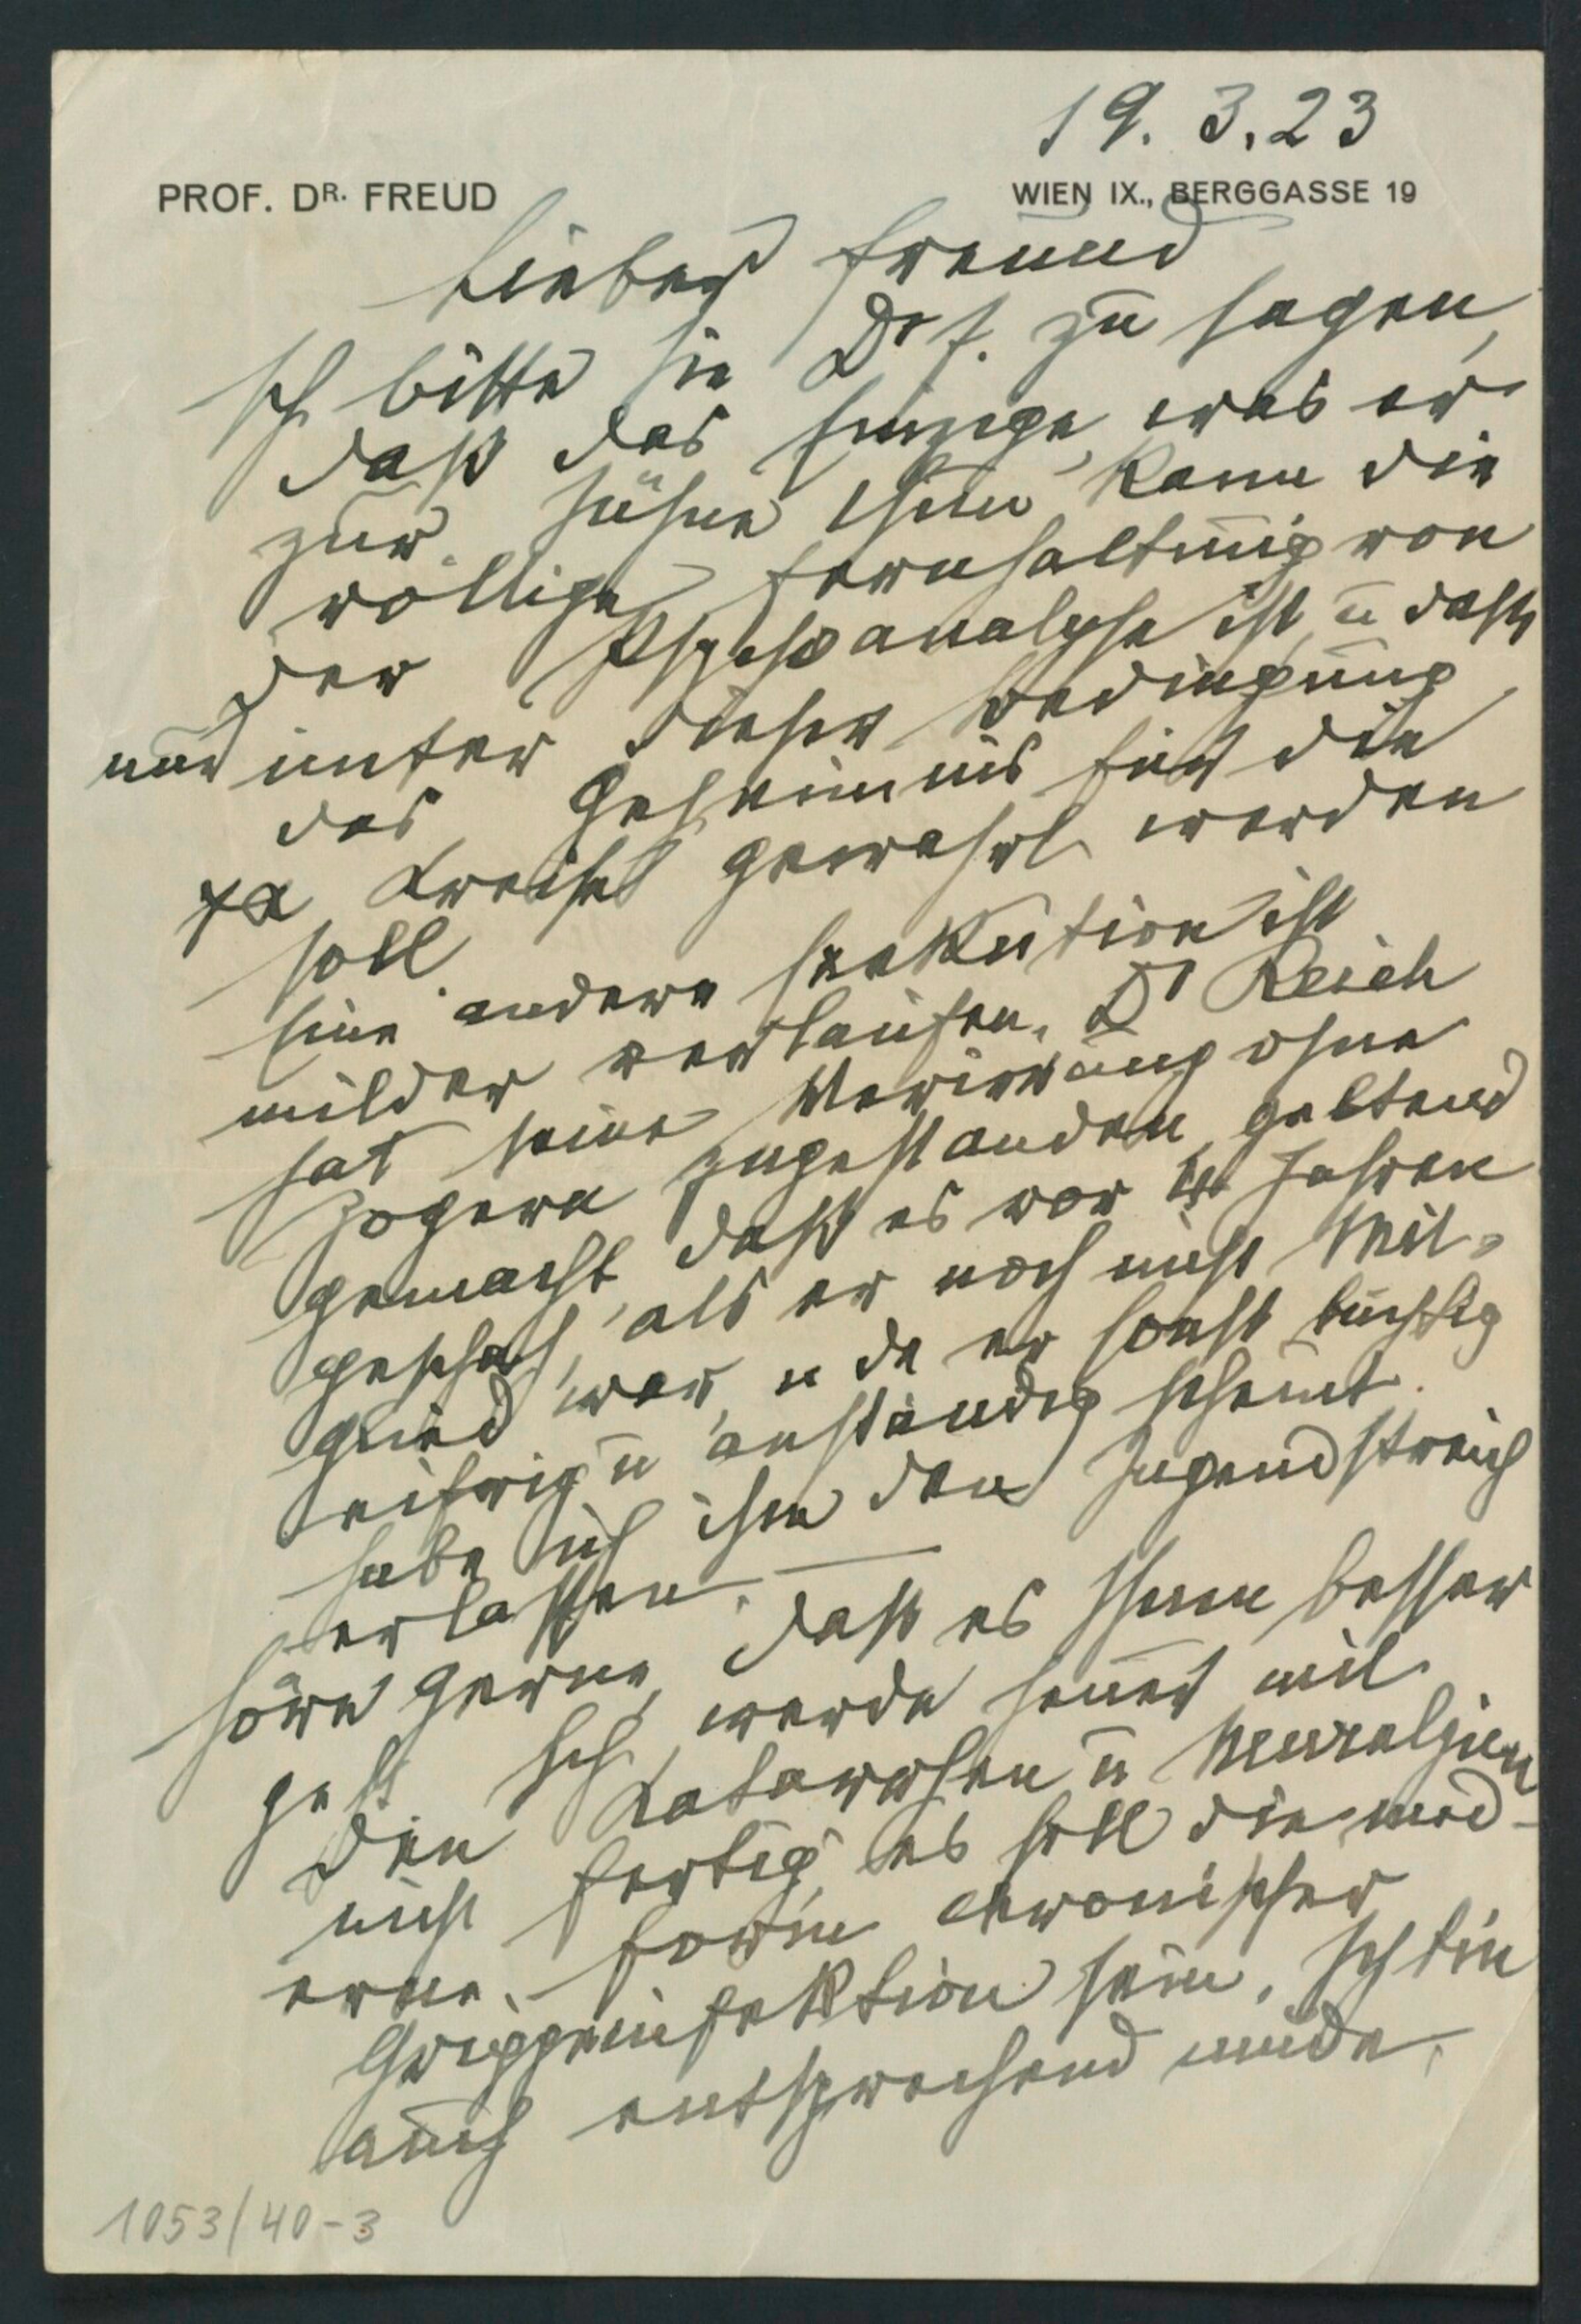 19. 3. 23
PROF. DR. FREUD
WIEN IX., BERGGASSE 19
Lieber Freund
Ich bitte Sie Dr F. zu sagen,
daß das Einzige, was er
zur Sühne thun kann die
völlige Fernhaltung von
der Psychoanalyse ist, u daß
nur unter dieser Bedingung
das Geheimnis für die
ψα Kreise gewahrt werden
soll.
Eine andere Exekution ist
milder verlaufen. Dr Reich
hat seine Verirrung ohne
Zögern zugestanden, geltend
gemacht, daß es vor Jahren
geschah, als er noch nicht Mit-
glied war, u da er sonst tüchtig
eifrig u anständig scheint
habe ich ihm den Jugendstreich
erlassen. —
Höre gerne, daß es Ihnen besser
geht. Ich werde heuer mit
den Katarrhen u Neuralgien
nicht fertig, es soll die mod-
erne Form chronischer
Grippeinfektion sein. Ich bin
auch entsprechend müde.
1053/40-3